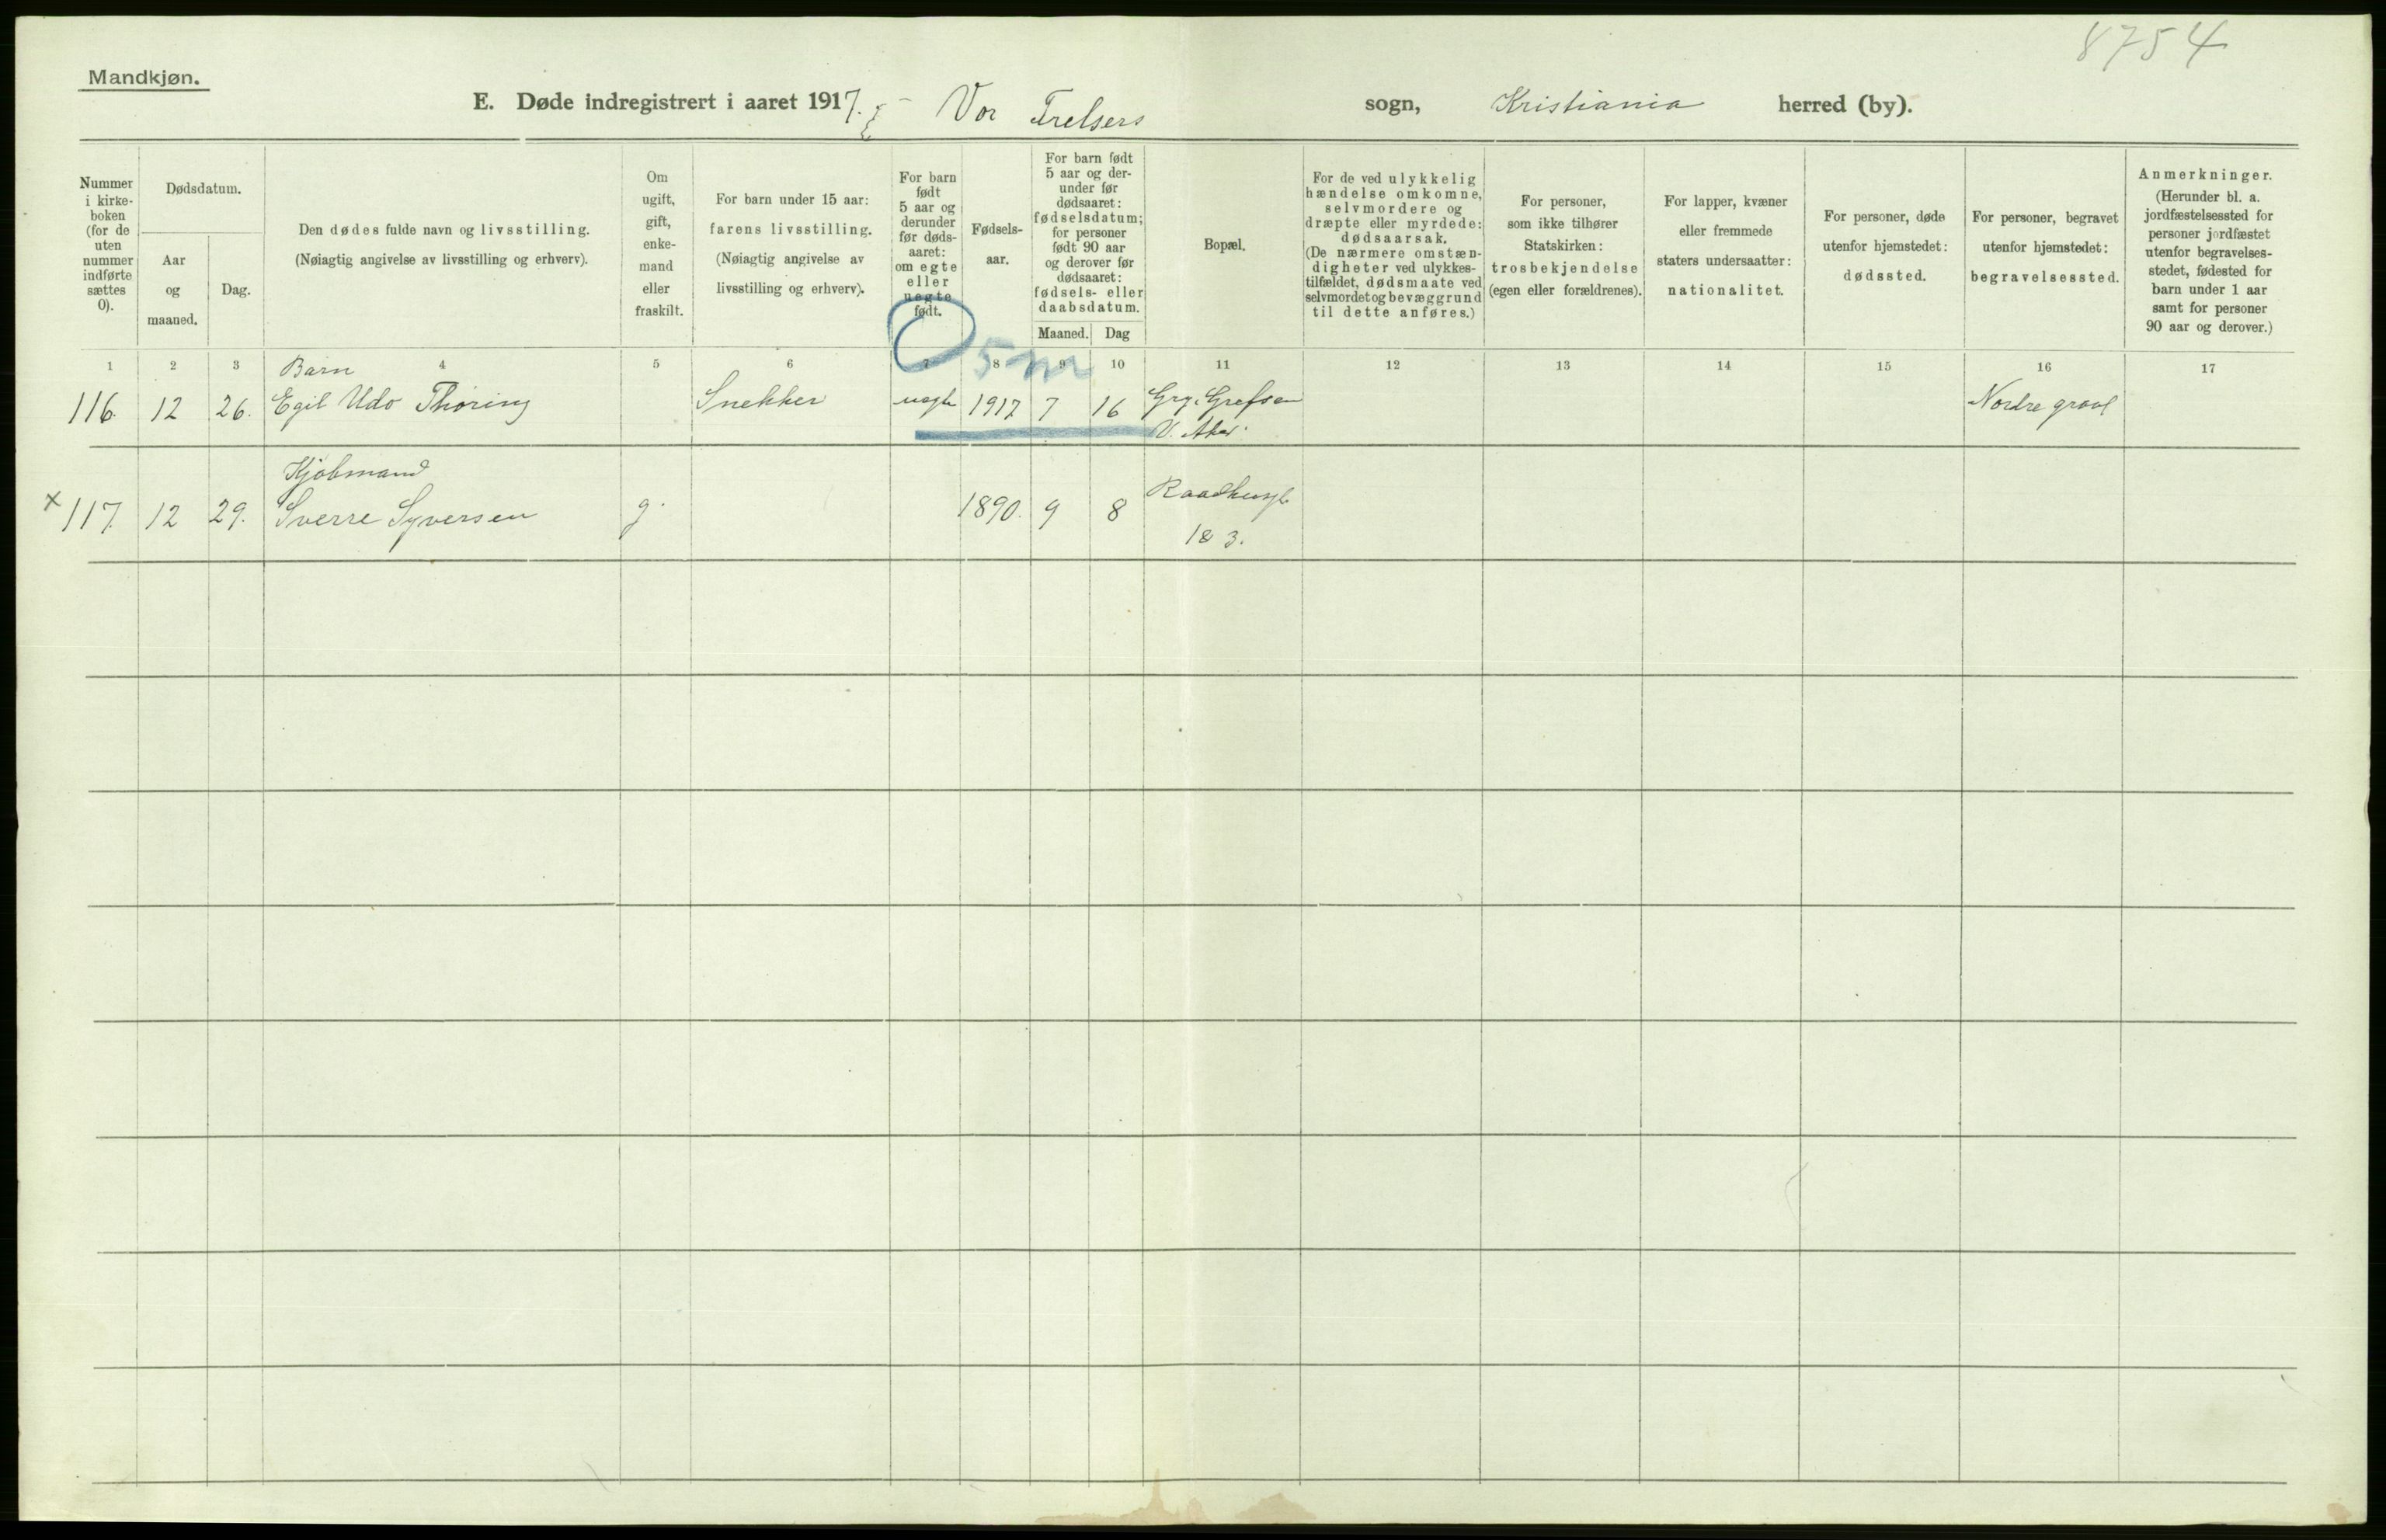 8754
Mandkjøn.
E. Døde indregistrert i aaret 1917. Vor Frelsers sogn, Kristiania herred (by).
Nummer
i kirke-
boken
(for de
uten
nummer
indførte
sættes
0).
Dødsdatum.
Aar
og
maaned.
Dag.
Den dødes fulde navn og livsstilling.
(Nøiagtig angivelse av livsstilling og erhverv).
Om
ugift,
gift,
enke-
mand
eller
fraskilt.
For barn under 15 aar:
farens livsstilling.
(Nøiagtig angivelse av
livsstilling og erhverv).
For barn
født
5 aar og
derunder
før døds-
aaret:
om egte
eller
uegte
født.
Fødsels-
aar.
For barn født
5 aar og der-
under før
dødsaaret:
fødselsdatum;
for personer
født 90 aar
og derover før
dødsaaret:
fødsels- eller
daabsdatum.
Maaned. Dag
Bopæl.
For de ved ulykkelig
hændelse omkomne,
selvmordere og
dræpte eller myrdede:
dødsaarsak.
(De nærmere omstæn-
digheter ved ulykkes-
tilfældet, dødsmaate ved
selvmordet og bevæggrund
til dette anføres.)
For personer,
som ikke tilhører
Statskirken:
trosbekjendelse
(egen eller forældrenes).
For lapper, kvæner
eller fremmede
staters undersaatter:
nationalitet.
For personer, døde
utenfor hjemstedet:
dødssted.
For personer, begravet
utenfor hjemstedet:
begravelsessted.
Anmerkninger.
(Herunder bl. a.
jordfæstelsessted for
personer jordfæstet
utenfor begravelses-
stedet, fødested for
barn under 1 aar
samt for personer
90 aar og derover.)
1 2 3 4 5 6 7 8 9 10 11 12 13 14 15 16 17
5 m
Barn
116. 12 26. Egil Udo Thoring Snekker uegte 1917 7 16 Grefsen Nordre gravl
V. Aker
Kjøbmand
× 117. 12 29. Sverre Syversen g. 1890. 9 8 Raadhusgt
18 3.